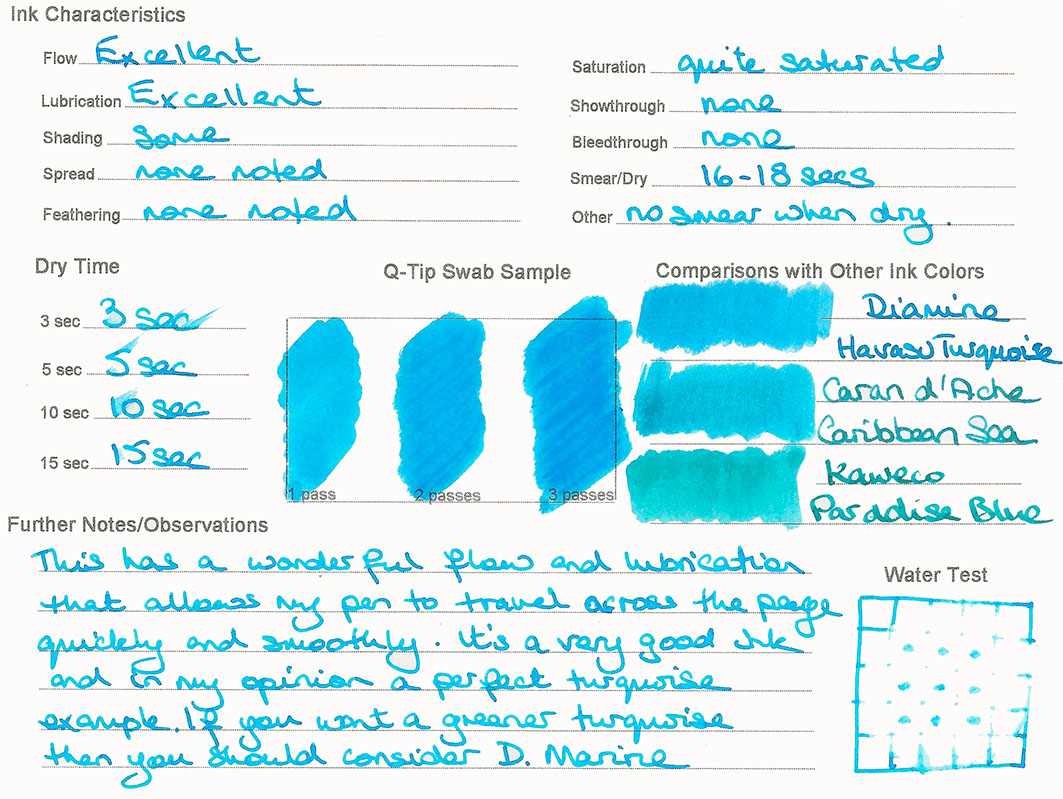 Ink Characteristics
Flow Excellent
Lubrication Excellent
Shading some
Spread none noted
Feathering none noted
Saturation quite saturated
Showthrough none
Bleedthrough none
Smear/Dry 16-18 secs
Other no smear when dry.
Dry Time
3 sec 3 sec
5 sec 5 sec
10 sec 10 sec
15 sec 15 sec
Q-Tip Swab Sample
1 pass
2 passes
3 passes
Comparisons with Other Ink Colors
Diamine
Havasu Turquoise
Caran d'Ache
Caribbean Sea
Kaweco
Paradise Blue
Further Notes/Observations
This has a wonderful flow and lubrication
that allows my pen to travel across the page
quickly and smoothly. It's a very good ink
and in my opinion a perfect turquoise
example. If you want a greener turquoise
then you should consider D. Marine
Water Test